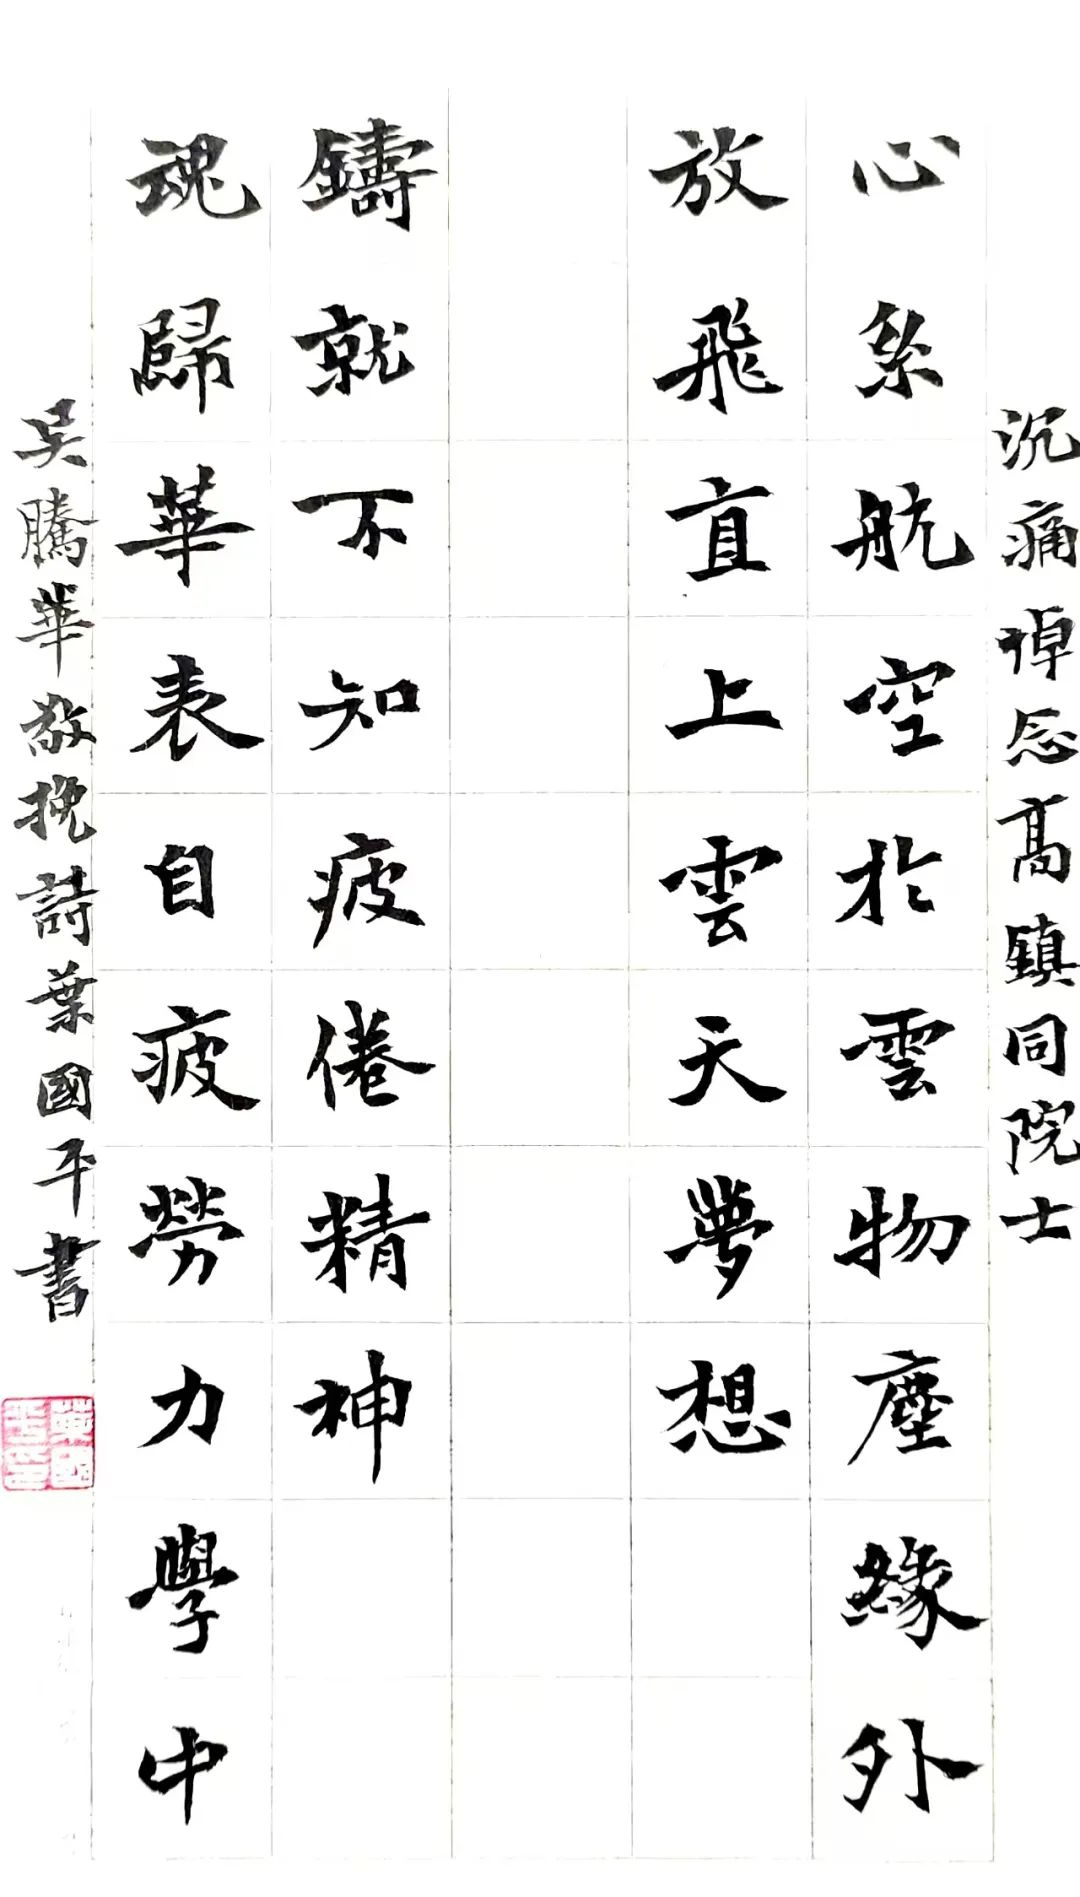 沉痛悼念高鎮同院士
心系航空於雲物塵緣外
放飛直上雲天夢想
鑄就不知疲倦精神
魂歸華表自疲勞力學中
吳騰華敬挽詩葉國平書
葉國平印